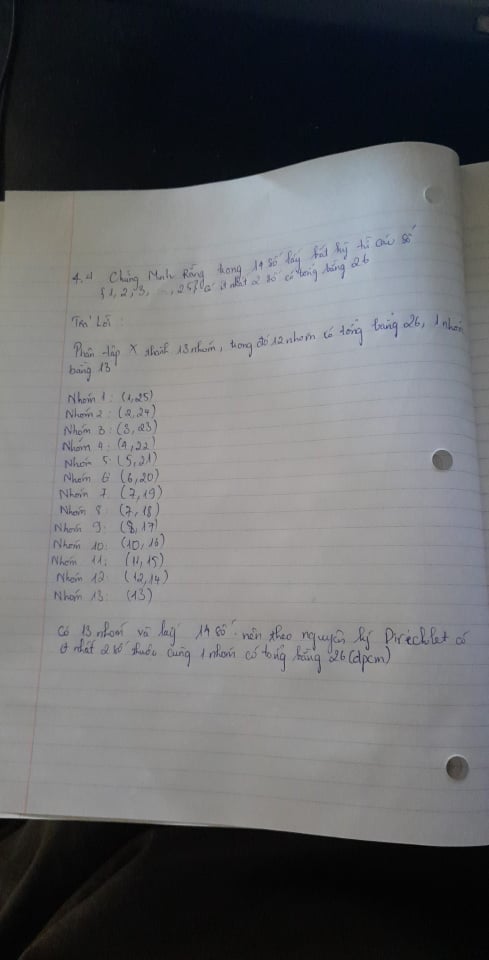 4.4 Chứng Minh Rằng trong 14 số lấy bất kỳ từ các số
{1, 2, 3, ..., 25} có ít nhất 2 số có tổng bằng 26
Trả Lời :
Phân tập X thành 13 nhóm, trong đó 12 nhóm có tổng bằng 26, 1 nhóm
bằng 13
Nhóm 1 : (1,25)
Nhóm 2 : (2,24)
Nhóm 3 : (3,23)
Nhóm 4 : (4,22)
Nhóm 5 : (5,21)
Nhóm 6 : (6,20)
Nhóm 7 : (7,19)
Nhóm 8 : (7,18)
Nhóm 9 : (8,17)
Nhóm 10 : (10,16)
Nhóm 11 : (11,15)
Nhóm 12 : (12,14)
Nhóm 13 : (13)
Có 13 nhóm và lấy 14 số nên theo nguyên lý Direchlet có
ít nhất 2 số thuộc cùng 1 nhóm có tổng bằng 26 (dpcm)